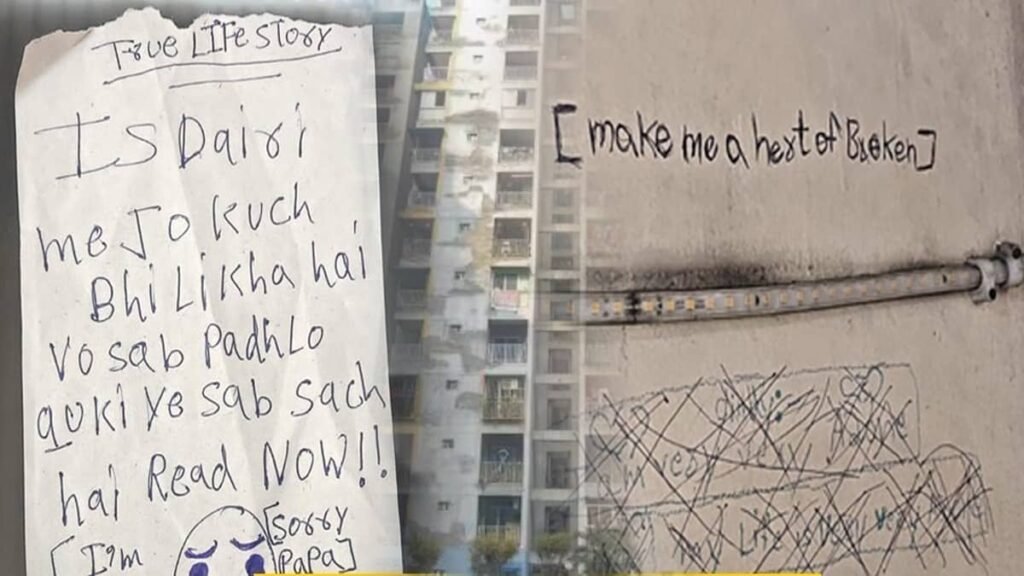 True LIFe Story
Is Dairi
me Jo kuch
Bhi Likha hai
vo sab Padhlo
quki ye sab sach
hai Read NOW!!
[I'm
[Sorry
Papa]
[make me a hert of Broken]